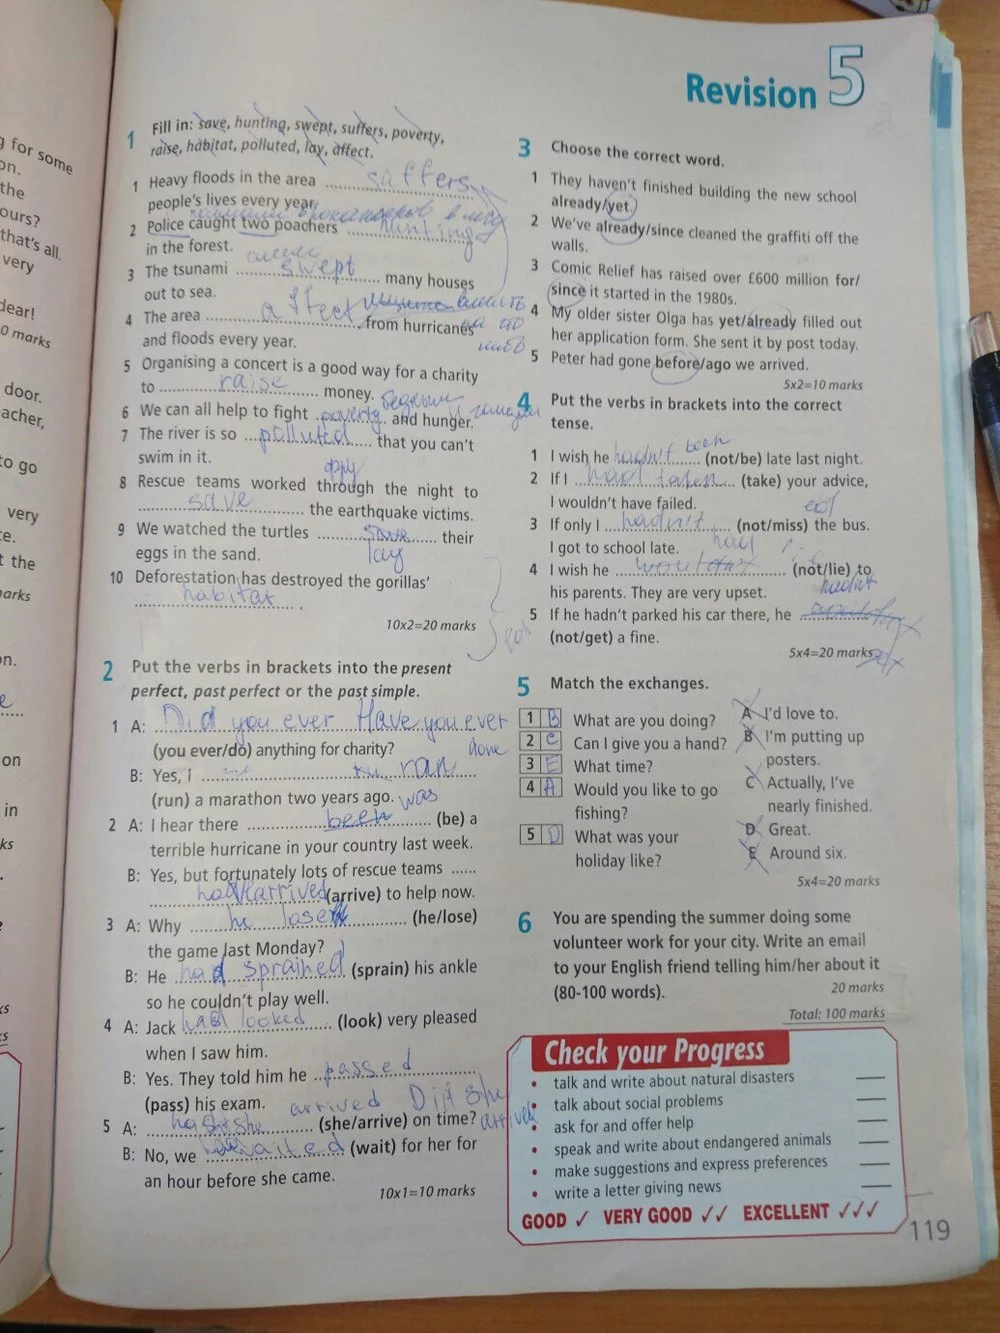 g for some
on.
the
ours?
that's all.
very
dear!
0 marks
door.
acher,
to go
very
te.
t the
narks
on.
on
in
ks
Revision 5
1 Fill in: save, hunting, swept, suffers, poverty,
raise, habitat, polluted, lay, affect.
1 Heavy floods in the area saffers
people's lives every year.
2 Police caught two poachers hunting
in the forest.
3 The tsunami swept many houses
out to sea.
4 The area affect from hurricanes
and floods every year.
5 Organising a concert is a good way for a charity
to raise money.
6 We can all help to fight poverty and hunger.
7 The river is so polluted that you can't
swim in it.
8 Rescue teams worked through the night to
save the earthquake victims.
9 We watched the turtles save their
eggs in the sand. lay
10 Deforestation has destroyed the gorillas'
habitat .
10x2=20 marks
2 Put the verbs in brackets into the present
perfect, past perfect or the past simple.
1 A: Did you ever Have you ever
(you ever/do) anything for charity? done
B: Yes, I ran
(run) a marathon two years ago. was
2 A: I hear there been (be) a
terrible hurricane in your country last week.
B: Yes, but fortunately lots of rescue teams
have arrived (arrive) to help now.
3 A: Why he lose (he/lose)
the game last Monday?
B: He had sprained (sprain) his ankle
so he couldn't play well.
4 A: Jack had looked (look) very pleased
when I saw him.
B: Yes. They told him he passed
(pass) his exam. arrived Did she
5 A: has she (she/arrive) on time? arrived
B: No, we waited (wait) for her for
an hour before she came.
10x1=10 marks
3 Choose the correct word.
1 They haven't finished building the new school
already/yet.
2 We've already/since cleaned the graffiti off the
walls.
3 Comic Relief has raised over £600 million for/
since it started in the 1980s.
4 My older sister Olga has yet/already filled out
her application form. She sent it by post today.
5 Peter had gone before/ago we arrived.
5x2=10 marks
4 Put the verbs in brackets into the correct
tense.
1 I wish he hadn't been (not/be) late last night.
2 If I had taken (take) your advice,
I wouldn't have failed.
3 If only I hadn't (not/miss) the bus.
I got to school late. had
4 I wish he wouldn't (not/lie) to
his parents. They are very upset. hadn't
5 If he hadn't parked his car there, he
(not/get) a fine.
5x4=20 marks
5 Match the exchanges.
1 B What are you doing?
2 C Can I give you a hand?
3 E What time?
4 A Would you like to go
fishing?
5 D What was your
holiday like?
A I'd love to.
B I'm putting up
posters.
C Actually, I've
nearly finished.
D Great.
E Around six.
5x4=20 marks
6 You are spending the summer doing some
volunteer work for your city. Write an email
to your English friend telling him/her about it
(80-100 words).
20 marks
Total: 100 marks
Check your Progress
• talk and write about natural disasters
• talk about social problems
• ask for and offer help
• speak and write about endangered animals
• make suggestions and express preferences
• write a letter giving news
GOOD ✓ VERY GOOD ✓✓ EXCELLENT ✓✓✓
119